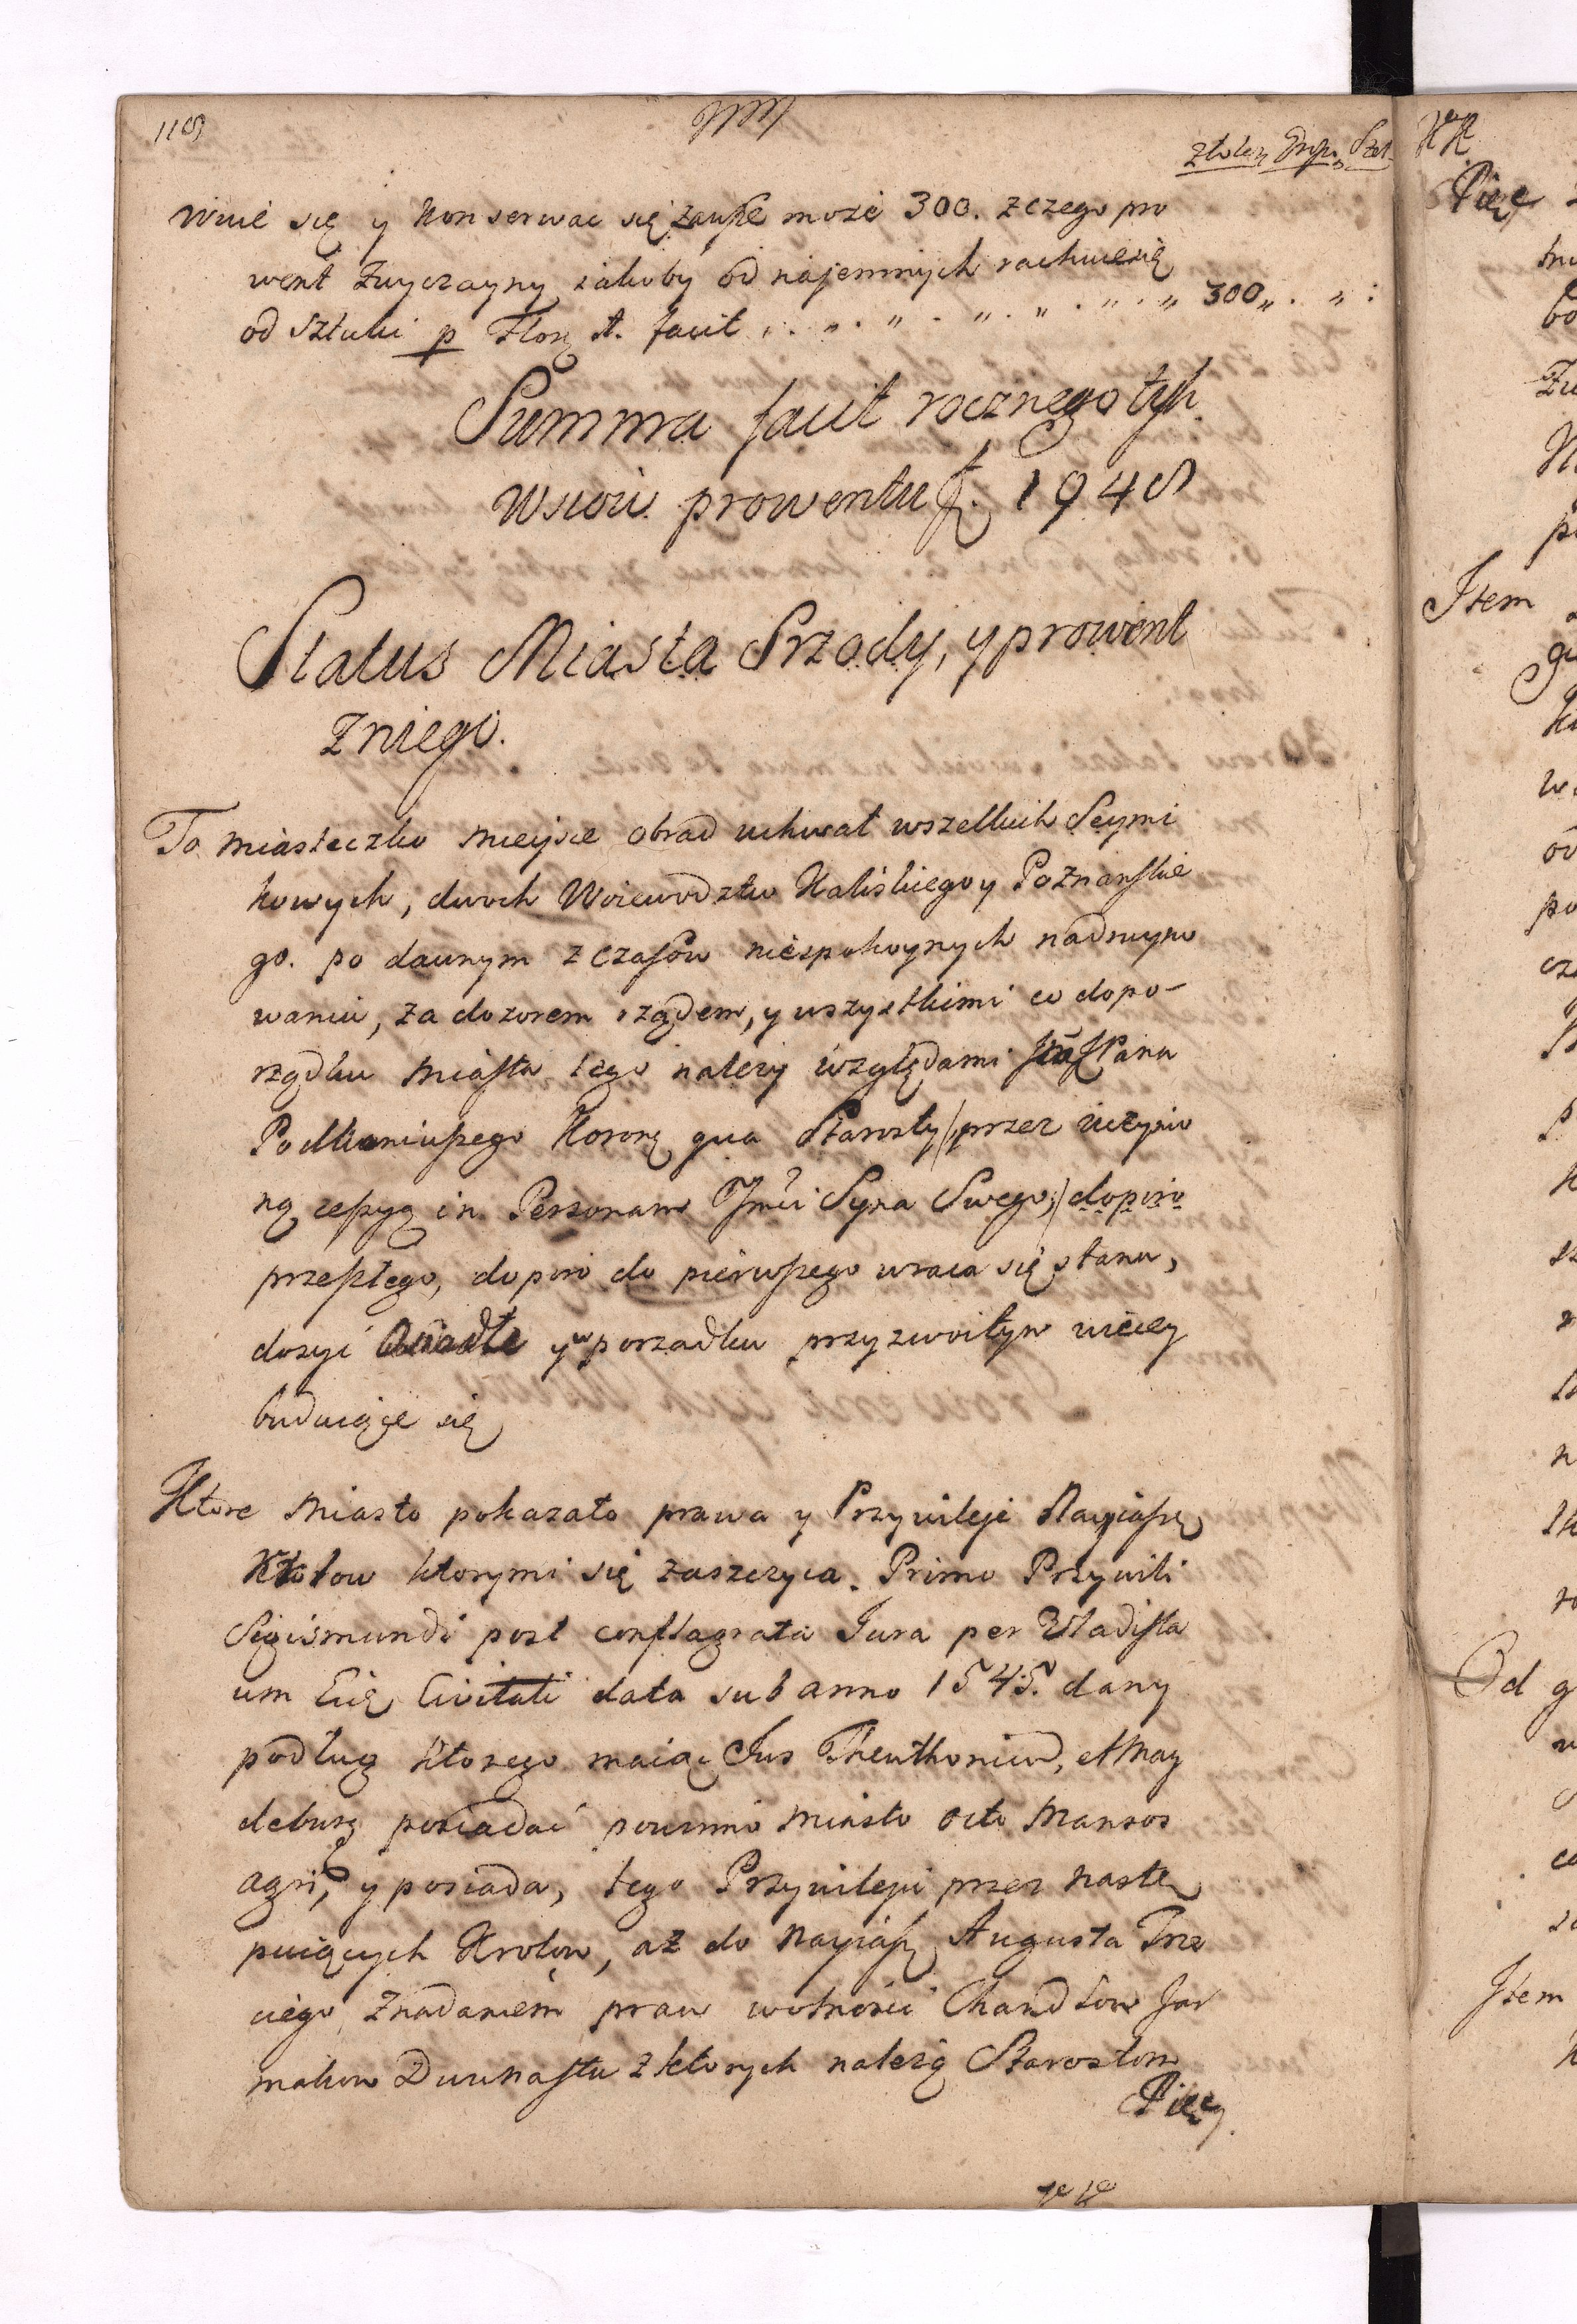 118
złotey Grosz. Szel.
Wiuć się y konserwac się zawsze może 300. z czego pro
went zwyczayny iakoby od najemnych rachuie się
od sztuki p Flor. 1. facit „ . „ . „ . „ . „ . „ . „ 300 „ . „ :
Summa facit rocznego tych
Wsiow prowentu f. 1948
Status Miasta Srzody, y prowent
z niego.
To miasteczko mieysce obrad uchwał wszelkich Seymi
kowych, dwoch Woiewodztw Kaliskiego y Poznanskie
go. po dawnym z czasow niespokoynych nadruyno
waniu, za dozorem rządem, y wszystkimi co do po-
rządku miasta tego należy względami Pana
Podkomorzego Koronę qua Starosty / przez uczynio
ną cessyą in Personam Jmci Syna Swego / dopiro
przeszłego, dopiro do pierwszego wraca się stanu,
dosyć Osiadłe y w porządku przyzwoitym więcey
buduiące się
Ktore Miasto pokazało prawa y Przywileje Nayiasz
Krolow ktorymi się zaszczyca. Primo Przywili
Sigismundi post conflagrata Jura per Wladisla
um Eię Civitati data sub anno 1545. dany
podług ktorego maiąc Jus Theuthonicu, et May
deburg posiadać powinno Miasto octo Mansos
agri, y posiada, tego Przywileju przez nastę
puiących Krolow, aż do Nayiasz Augusta Trze
ciego z nadaniem praw wolności Chandlow Jar
makow Dwunastu z ktorych należą Starostom
Pięc
Pięc
Item
Od g
Item